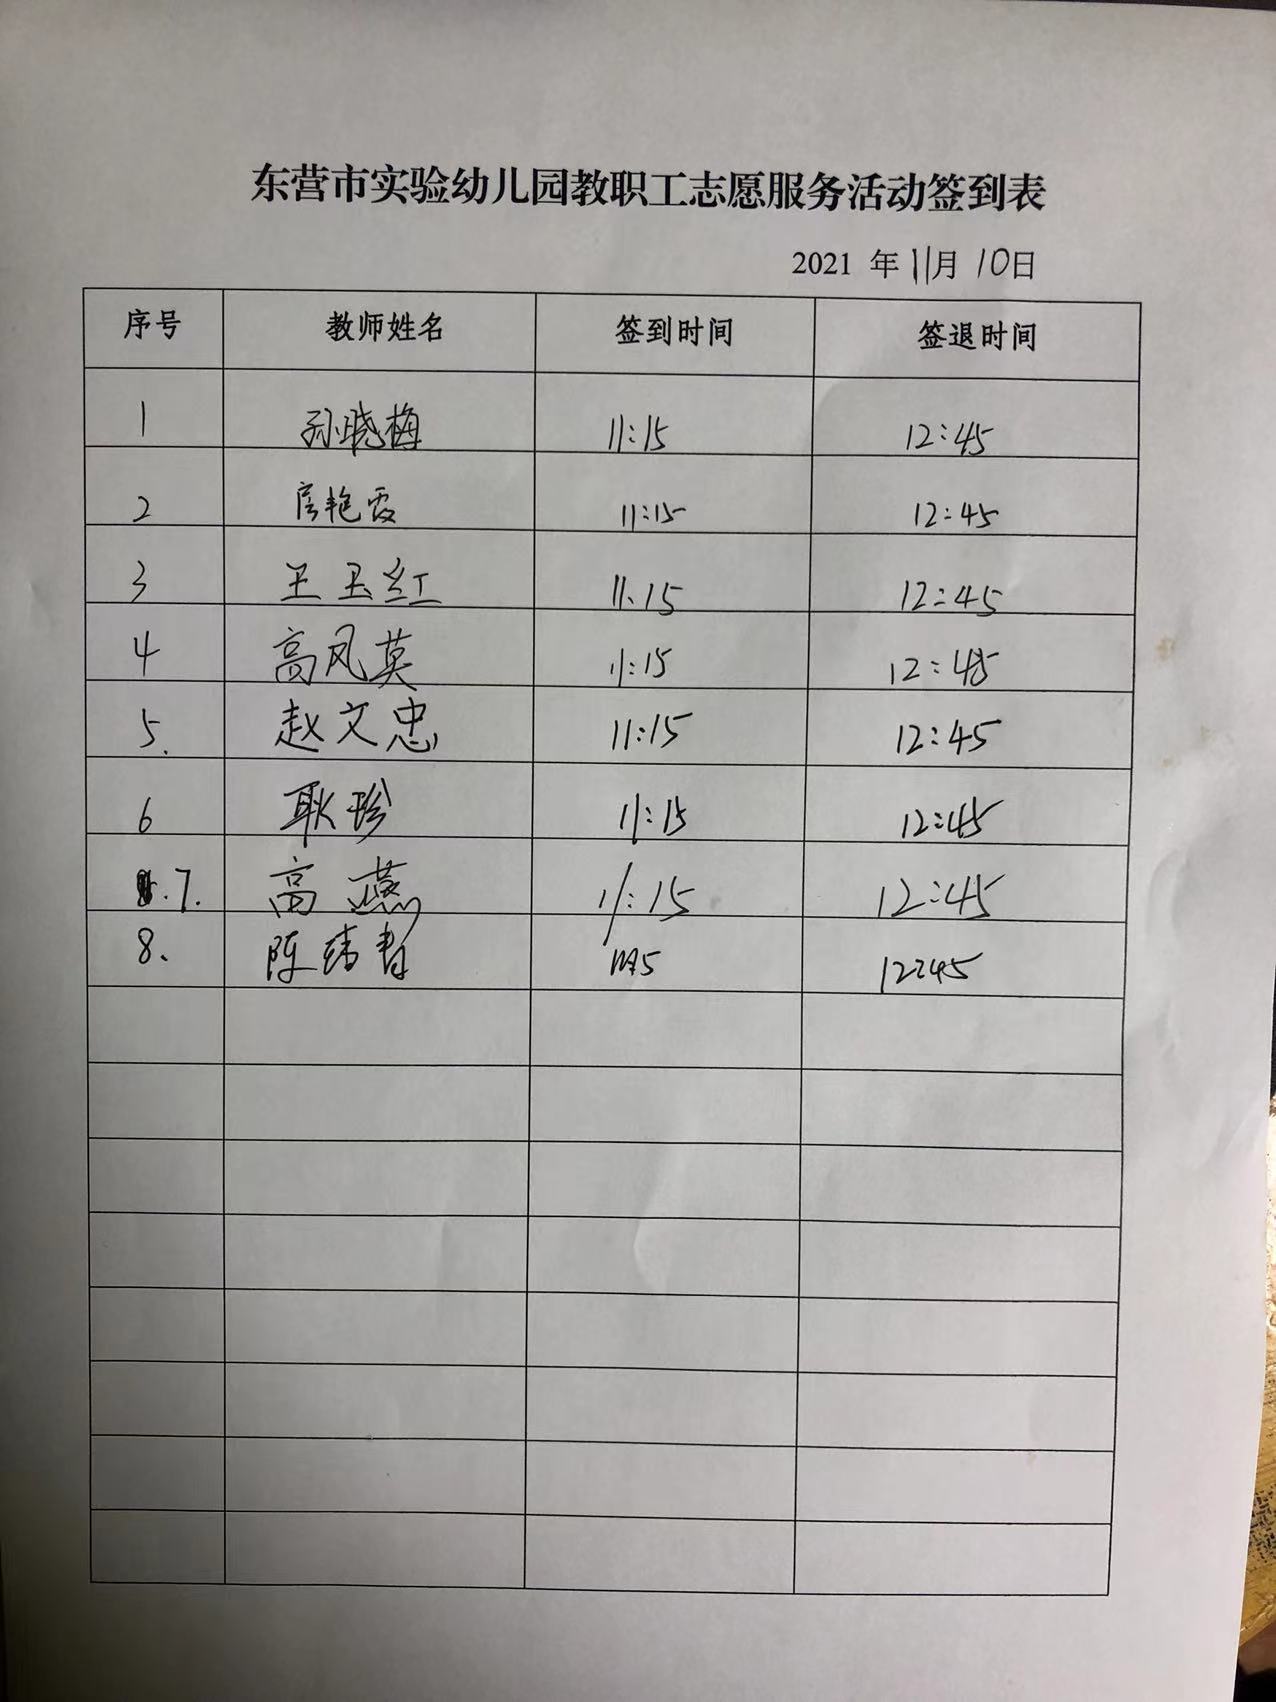 东营市实验幼儿园教职工志愿服务活动签到表
2021 年 11月 10日
序号 教师姓名 签到时间 签退时间
1 孙晓梅 11:15 12:45
2 房艳霞 11:15 12:45
3 王玉红 11:15 12:45
4 高凤英 11:15 12:45
5. 赵文忠 11:15 12:45
6 耿珍 11:15 12:45
7. 高燕 11:15 12:45
8. 陈 12:45